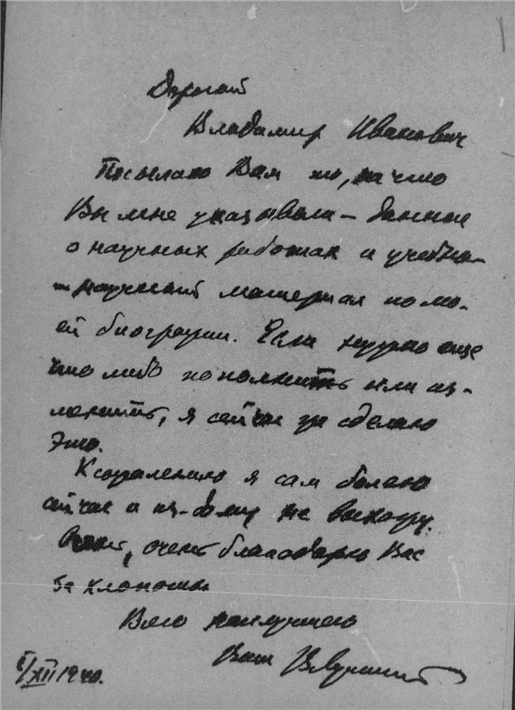 Дорогой
Владимир Иванович
Посылаю Вам то, на что
Вы мне указывали – данные
о научных работах и учебно-
научный материал по мо-
ей биографии. Если нужно еще
что либо пополнить или из-
менить, я сейчас же сделаю
это.
К сожалению я сам болею
сейчас и из дому не выхожу.
очень благодарю Вас
за хлопоты
Всего наилучшего
Ваш
/XII 1940.